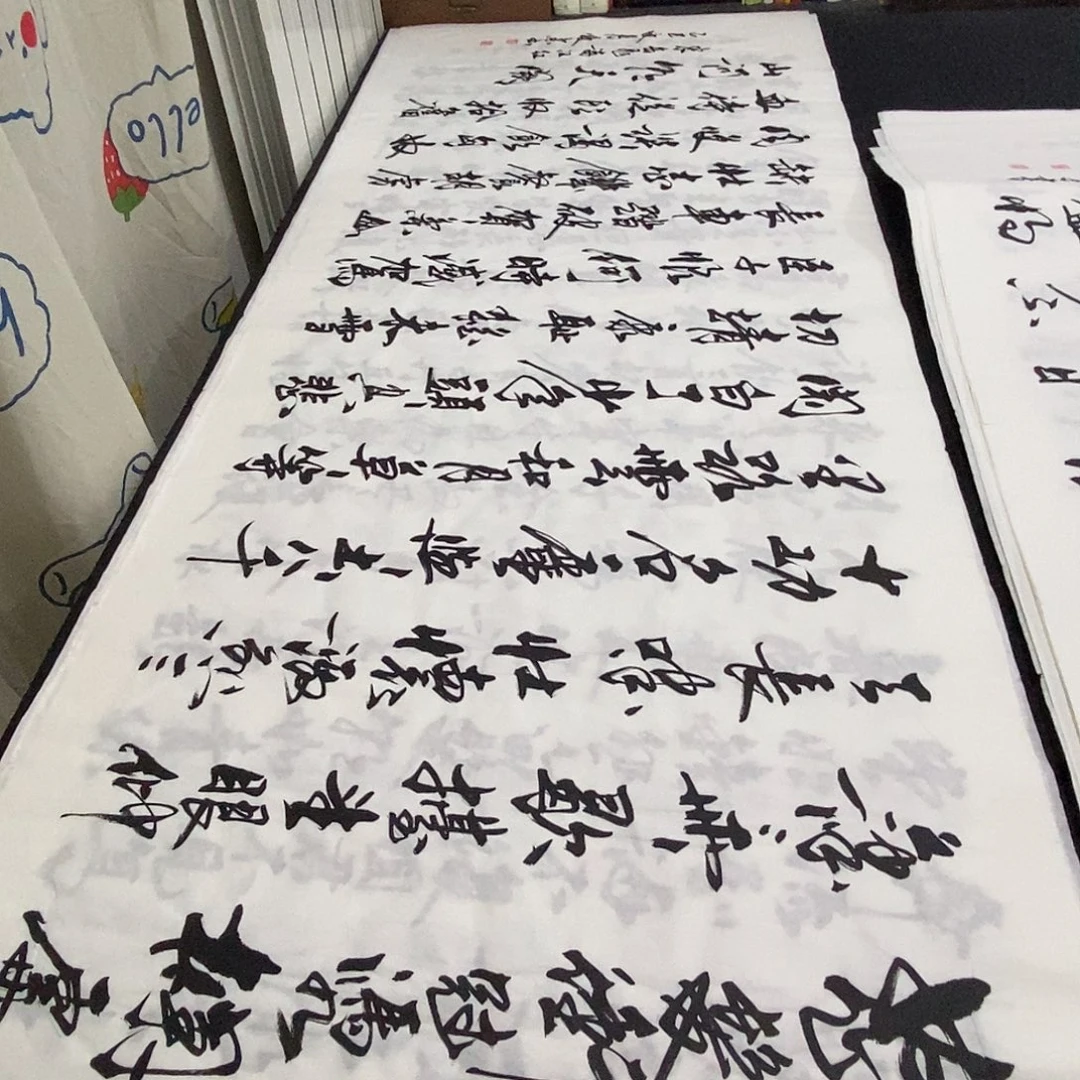 怒髮衝冠憑闌處
瀟瀟雨歇抬望眼仰
天長嘯壯懷激烈三
十功名塵與土八千
里路雲和月莫等
閒白了少年頭空悲
切靖康恥猶未雪
臣子恨何時滅駕
長車踏破賀蘭山
缺壯志飢餐胡虜
肉笑談渴飲匈奴
血待從頭收拾舊
山河朝天闕
岳飛滿江紅
日
ello